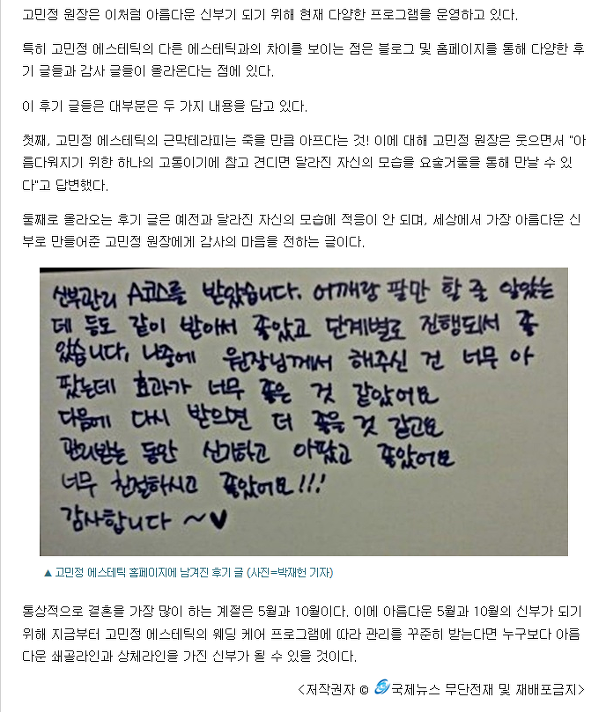 고민정 원장은 이처럼 아름다운 신부기 되기 위해 현재 다양한 프로그램을 운영하고 있다.
특히 고민정 에스테틱의 다른 에스테틱과의 차이를 보이는 점은 블로그 및 홈페이지를 통해 다양한 후
기 글들과 감사 글들이 올라온다는 점에 있다.
이 후기 글들은 대부분은 두 가지 내용을 담고 있다.
첫째, 고민정 에스테틱의 근막테라피는 죽을 만큼 아프다는 것! 이에 대해 고민정 원장은 웃으면서 "아
름다워지기 위한 하나의 고통이기에 참고 견디면 달라진 자신의 모습을 요술거울을 통해 만날 수 있
다"고 답변했다.
둘째로 올라오는 후기 글은 예전과 달라진 자신의 모습에 적응이 안 되며, 세상에서 가장 아름다운 신
부로 만들어준 고민정 원장에게 감사의 마음을 전하는 글이다.
신부관리 A코스를 받았습니다. 어깨랑 팔만 할 줄 알았는
데 등도 같이 받아서 좋았고 단계별로 진행되서 좋
았습니다. 나중에 원장님께서 해주신 건 너무 아
팠는데 효과가 너무 좋은 것 같았어요
다음에 다시 받으면 더 좋을 것 같고요
관리받는 동안 신기하고 아팠고 좋았어요
너무 친절하시고 좋았어요!!!
감사합니다 ~♥
▲ 고민정 에스테틱 홈페이지에 남겨진 후기 글 (사진=박재헌 기자)
통상적으로 결혼을 가장 많이 하는 계절은 5월과 10월이다. 이에 아름다운 5월과 10월의 신부가 되기
위해 지금부터 고민정 에스테틱의 웨딩 케어 프로그램에 따라 관리를 꾸준히 받는다면 누구보다 아름
다운 쇄골라인과 상체라인을 가진 신부가 될 수 있을 것이다.
<저작권자 © 국제뉴스 무단전재 및 재배포금지>